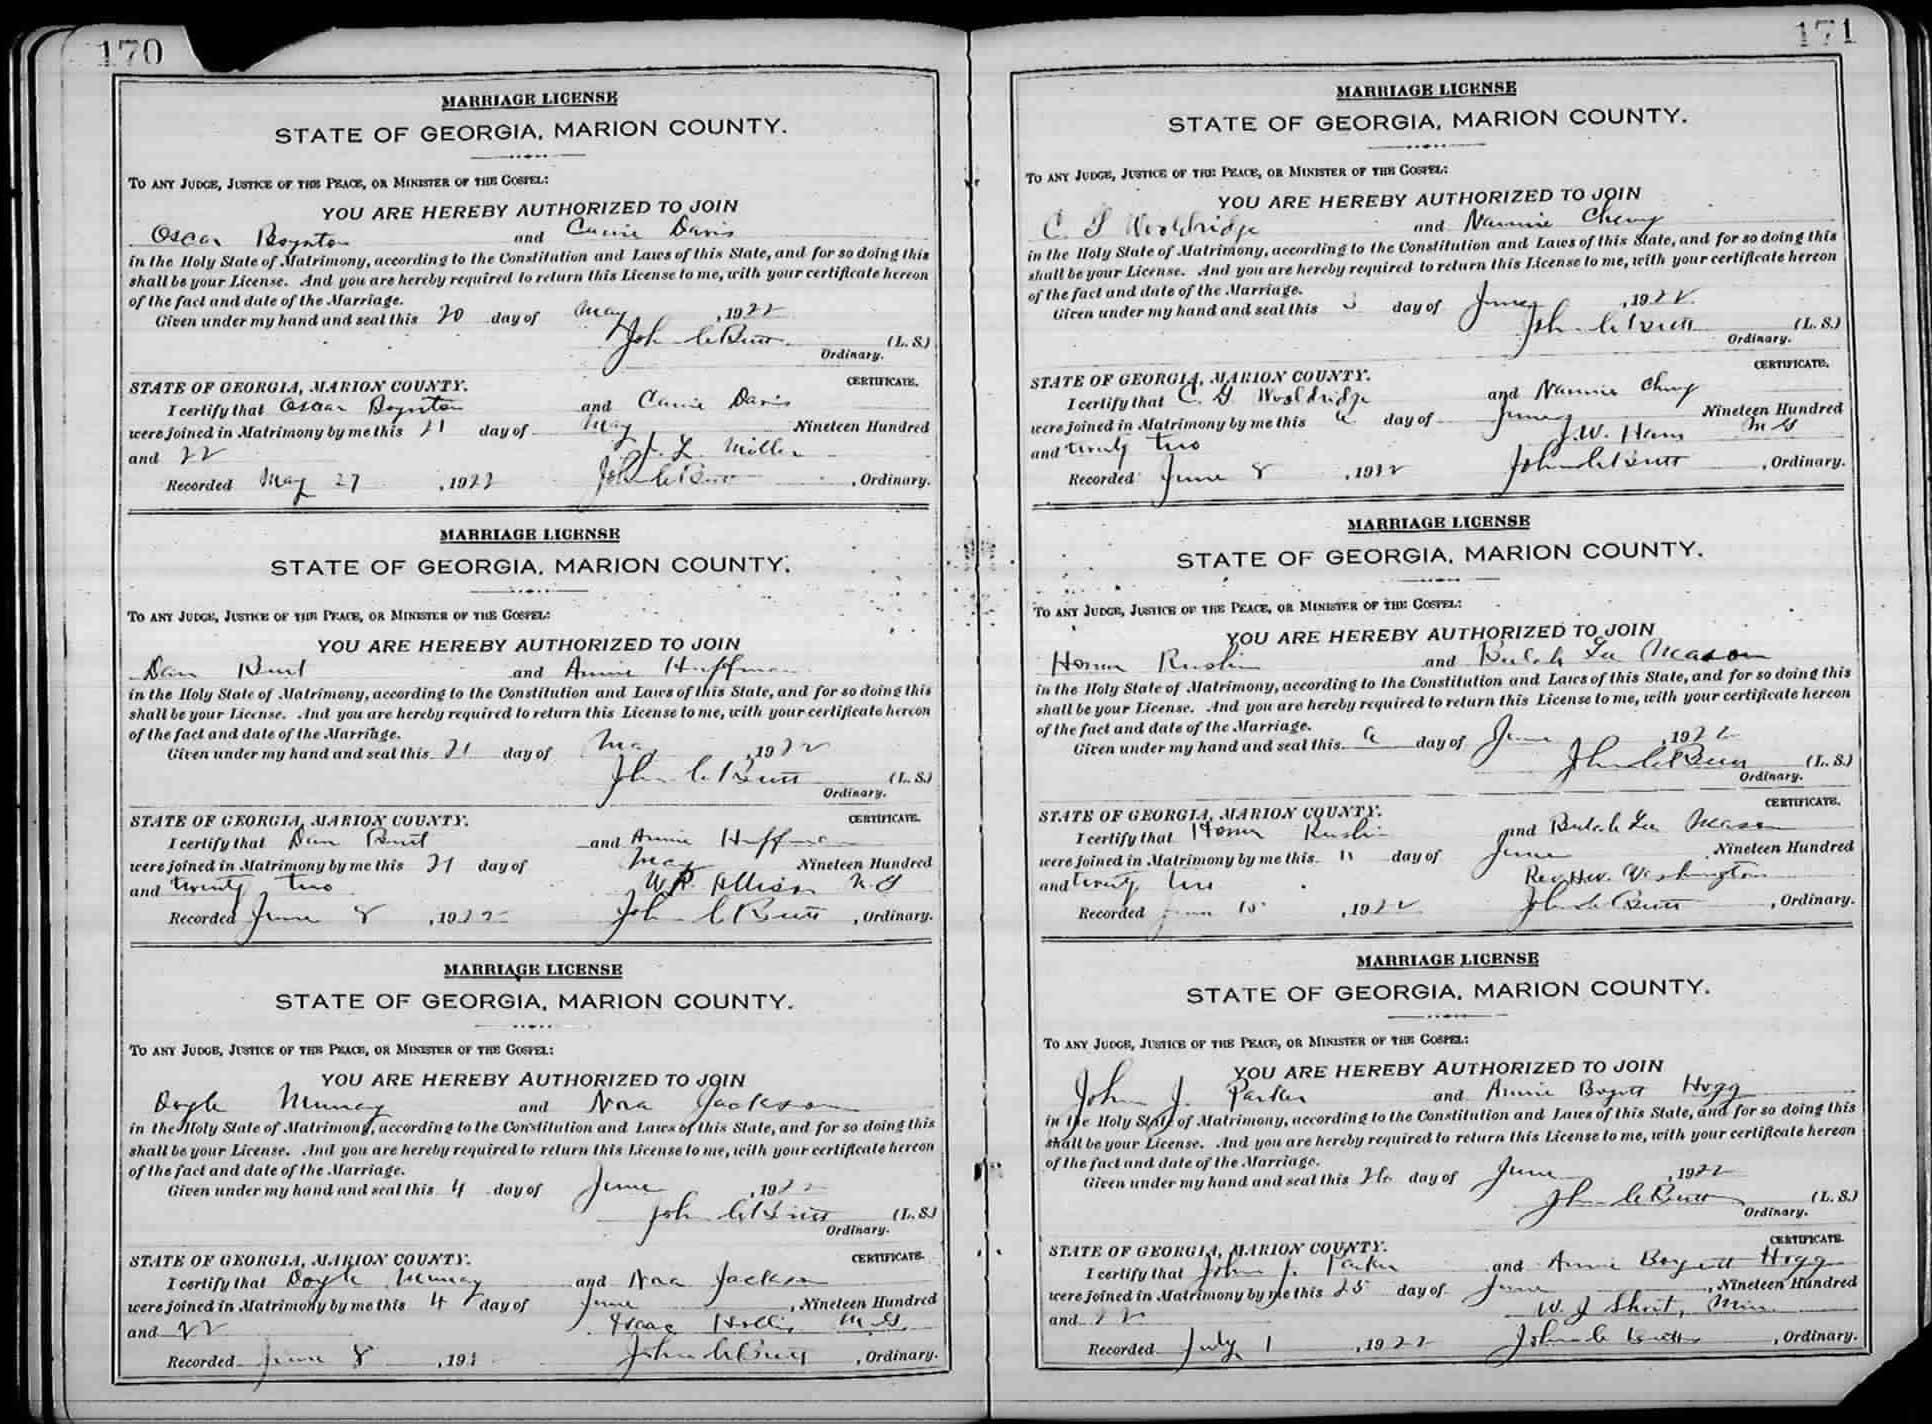 170
MARRIAGE LICENSE
STATE OF GEORGIA, MARION COUNTY.
TO ANY JUDGE, JUSTICE OF THE PEACE, OR MINISTER OF THE GOSPEL:
YOU ARE HEREBY AUTHORIZED TO JOIN
Oscar Boynton and Carrie Davis
in the Holy State of Matrimony, according to the Constitution and Laws of this State, and for so doing this
shall be your License. And you are hereby required to return this License to me, with your certificate hereon
of the fact and date of the Marriage.
Given under my hand and seal this 20 day of May, 1922
John C Butt (L. S.)
Ordinary.
CERTIFICATE.
STATE OF GEORGIA, MARION COUNTY.
I certify that Oscar Boynton and Carrie Davis
were joined in Matrimony by me this 21 day of May Nineteen Hundred
and 22 J. L. Miller
Recorded May 27, 1922 John C Butt, Ordinary.
MARRIAGE LICENSE
STATE OF GEORGIA, MARION COUNTY.
TO ANY JUDGE, JUSTICE OF THE PEACE, OR MINISTER OF THE GOSPEL:
YOU ARE HEREBY AUTHORIZED TO JOIN
Dan Burt and Annie Huffman
in the Holy State of Matrimony, according to the Constitution and Laws of this State, and for so doing this
shall be your License. And you are hereby required to return this License to me, with your certificate hereon
of the fact and date of the Marriage.
Given under my hand and seal this 21 day of May, 1922
John C Butt (L. S.)
Ordinary.
CERTIFICATE.
STATE OF GEORGIA, MARION COUNTY.
I certify that Dan Burt and Annie Huffman
were joined in Matrimony by me this 21 day of May Nineteen Hundred
and twenty two W. R. Allison
Recorded June 8, 1922 John C Butt, Ordinary.
MARRIAGE LICENSE
STATE OF GEORGIA, MARION COUNTY.
TO ANY JUDGE, JUSTICE OF THE PEACE, OR MINISTER OF THE GOSPEL:
YOU ARE HEREBY AUTHORIZED TO JOIN
Doyle Murray and Nora Jackson
in the Holy State of Matrimony, according to the Constitution and Laws of this State, and for so doing this
shall be your License. And you are hereby required to return this License to me, with your certificate hereon
of the fact and date of the Marriage.
Given under my hand and seal this 4 day of June, 1922
John C Butt (L. S.)
Ordinary.
CERTIFICATE.
STATE OF GEORGIA, MARION COUNTY.
I certify that Doyle Murray and Nora Jackson
were joined in Matrimony by me this 4 day of June, Nineteen Hundred
and 22 Isaac Hollis M.G.
Recorded June 8, 191 John C Butt, Ordinary.
171
MARRIAGE LICENSE
STATE OF GEORGIA, MARION COUNTY.
TO ANY JUDGE, JUSTICE OF THE PEACE, OR MINISTER OF THE GOSPEL:
YOU ARE HEREBY AUTHORIZED TO JOIN
C. G Wooldridge and Nannie Chevy
in the Holy State of Matrimony, according to the Constitution and Laws of this State, and for so doing this
shall be your License. And you are hereby required to return this License to me, with your certificate hereon
of the fact and date of the Marriage.
Given under my hand and seal this 3 day of June, 1922
John C Butt (L. S.)
Ordinary.
CERTIFICATE.
STATE OF GEORGIA, MARION COUNTY.
I certify that C. G. Wooldridge and Nannie
were joined in Matrimony by me this day of June Nineteen Hundred
and twenty two J.W. Ham M G
Recorded June 8, 1922 John C Butt, Ordinary.
MARRIAGE LICENSE
STATE OF GEORGIA, MARION COUNTY.
TO ANY JUDGE, JUSTICE OF THE PEACE, OR MINISTER OF THE GOSPEL:
YOU ARE HEREBY AUTHORIZED TO JOIN
Homer Rushin and Beulah Lee Mason
in the Holy State of Matrimony, according to the Constitution and Laws of this State, and for so doing this
shall be your License. And you are hereby required to return this License to me, with your certificate hereon
of the fact and date of the Marriage.
Given under my hand and seal this day of June, 1922
John C Butt (L. S.)
Ordinary.
CERTIFICATE.
STATE OF GEORGIA, MARION COUNTY.
I certify that Homer Rushin and Beulah Lee Mason
were joined in Matrimony by me this 11 day of June Nineteen Hundred
and twenty two Rev. H.W. Washington
Recorded June 15, 1922 John C Butt, Ordinary.
MARRIAGE LICENSE
STATE OF GEORGIA, MARION COUNTY.
TO ANY JUDGE, JUSTICE OF THE PEACE, OR MINISTER OF THE GOSPEL:
YOU ARE HEREBY AUTHORIZED TO JOIN
John J. Parker and Annie Boyett Hogg
in the Holy State of Matrimony, according to the Constitution and Laws of this State, and for so doing this
shall be your License. And you are hereby required to return this License to me, with your certificate hereon
of the fact and date of the Marriage.
Given under my hand and seal this 26 day of June, 1922
John C Butt (L. S.)
Ordinary.
CERTIFICATE.
STATE OF GEORGIA, MARION COUNTY.
I certify that John J. Parker and Annie Boyett Hogg
were joined in Matrimony by me this 25 day of June, Nineteen Hundred
and 22 W. J Short, Min.
Recorded July 1, 1922 John C Butt, Ordinary.